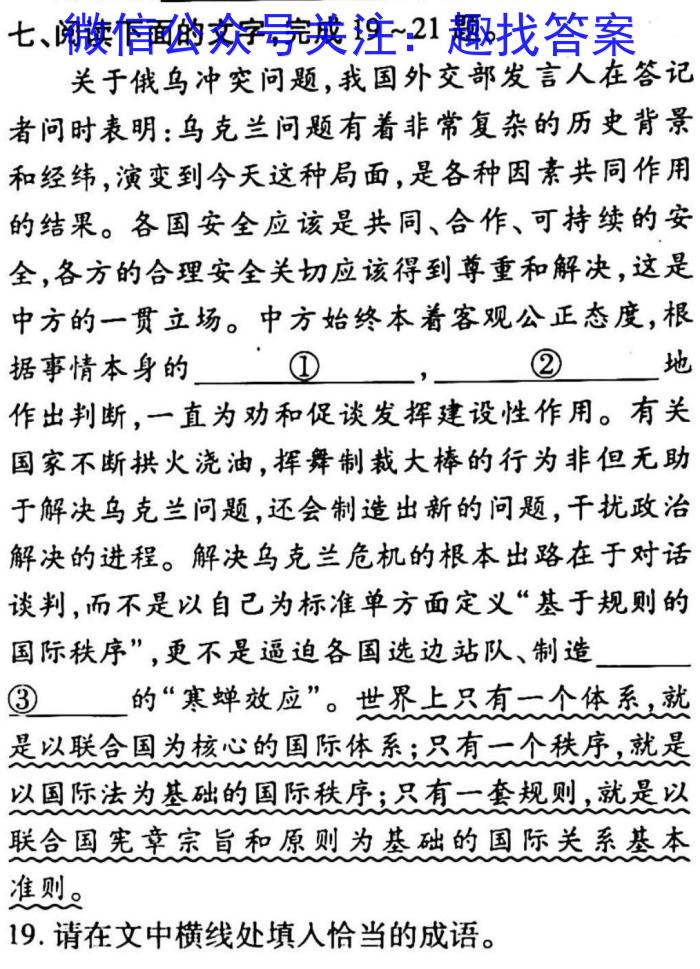 七、阅读下面的文字,完成19~21题。
微信公众号关注：趣找答案
关于俄乌冲突问题,我国外交部发言人在答记
者问时表明:乌克兰问题有着非常复杂的历史背景
和经纬,演变到今天这种局面,是各种因素共同作用
的结果。各国安全应该是共同、合作、可持续的安
全,各方的合理安全关切应该得到尊重和解决,这是
中方的一贯立场。中方始终本着客观公正态度,根
据事情本身的 ① , ② 地
作出判断,一直为劝和促谈发挥建设性作用。有关
国家不断拱火浇油,挥舞制裁大棒的行为非但无助
于解决乌克兰问题,还会制造出新的问题,干扰政治
解决的进程。解决乌克兰危机的根本出路在于对话
谈判,而不是以自己为标准单方面定义“基于规则的
国际秩序”,更不是逼迫各国选边站队、制造
③ 的“寒蝉效应”。世界上只有一个体系,就
是以联合国为核心的国际体系;只有一个秩序,就是
以国际法为基础的国际秩序;只有一套规则,就是以
联合国宪章宗旨和原则为基础的国际关系基本
准则。
19. 请在文中横线处填入恰当的成语。